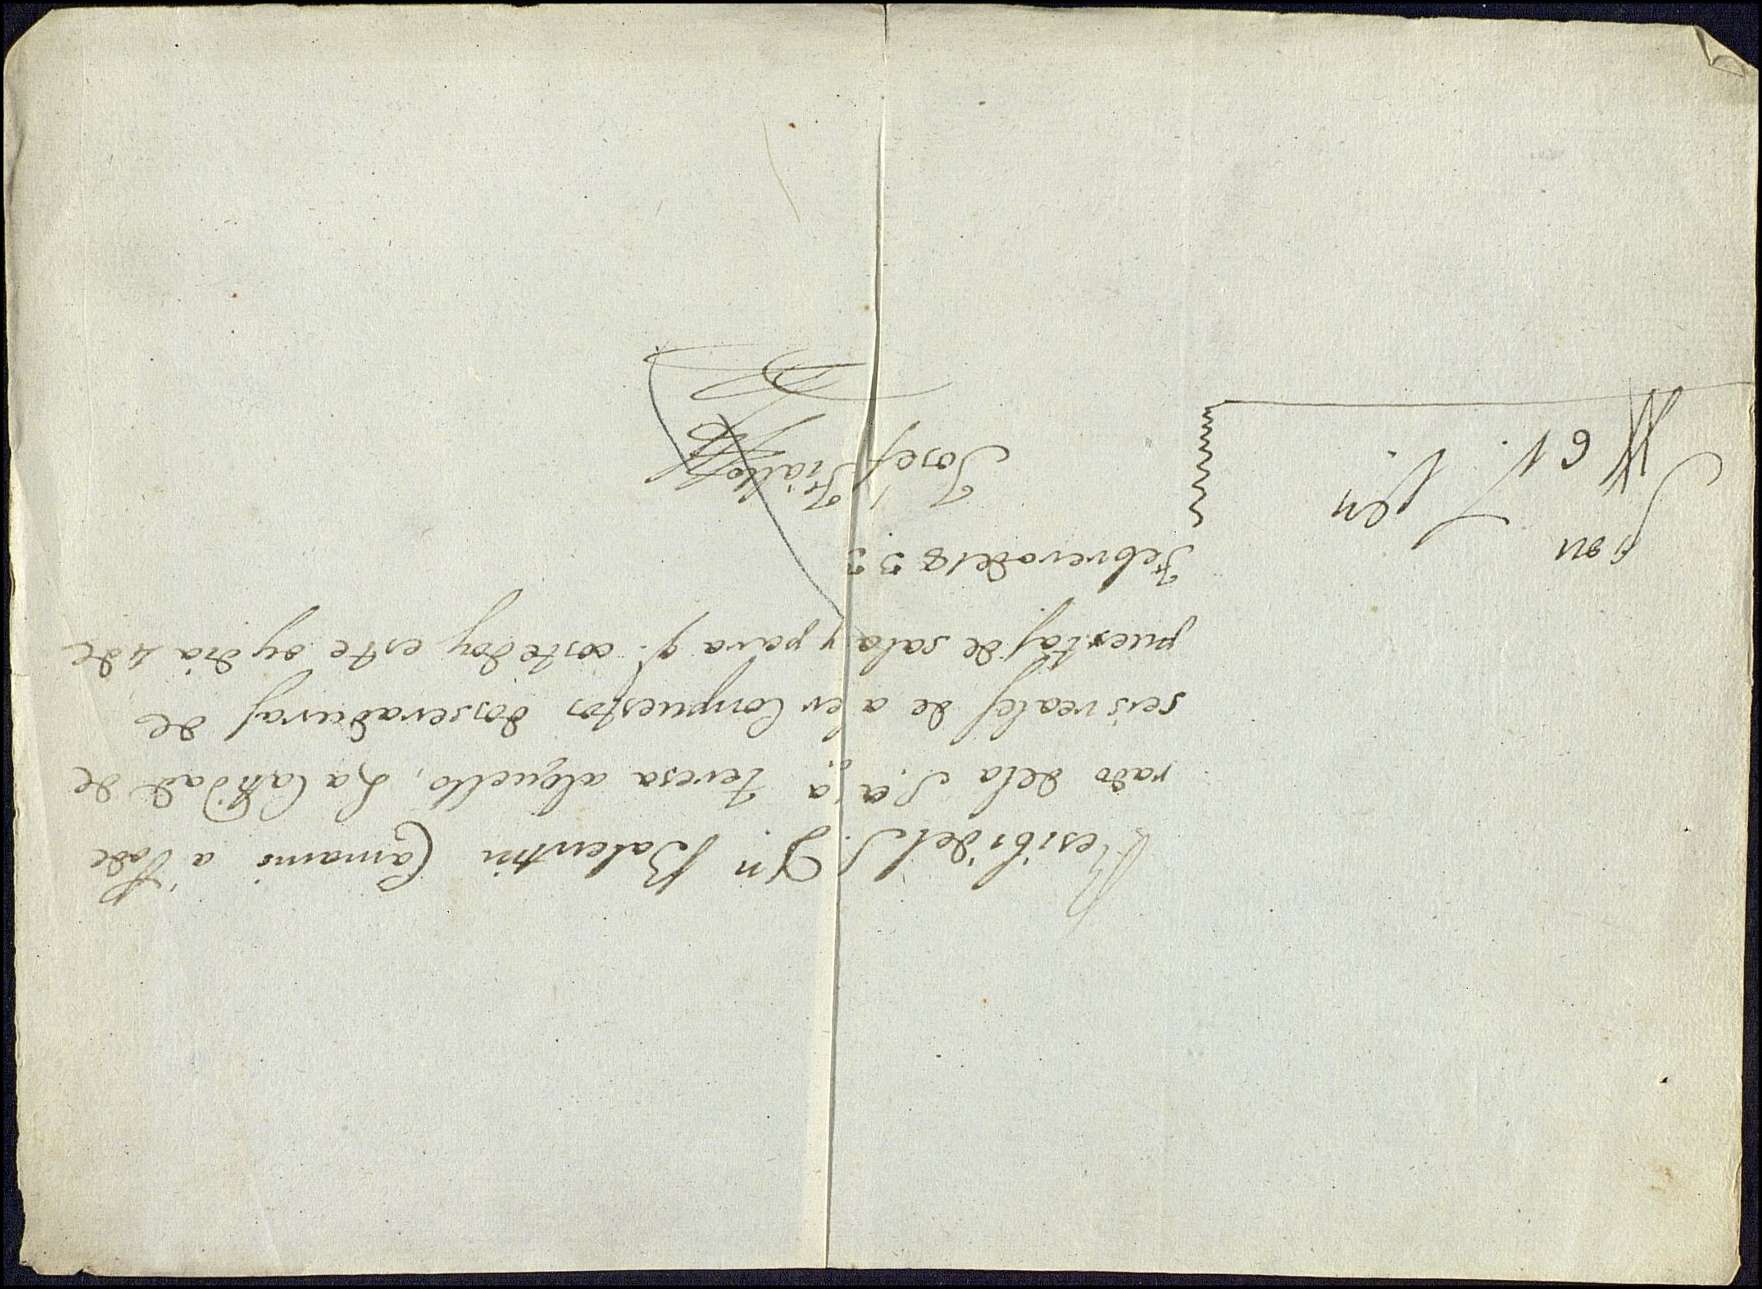 Resibi del S. Dn Balentin Camario a Pode
rado dela S.a D.a teresa alguello, La Catidad de
seis reales de aber Conpuestos dos seraduras de
puertas de sala y para q.e coste doy este oy dia 4 de
Febrero de 1833
Josef Fiallo
Son
6 r. V.en